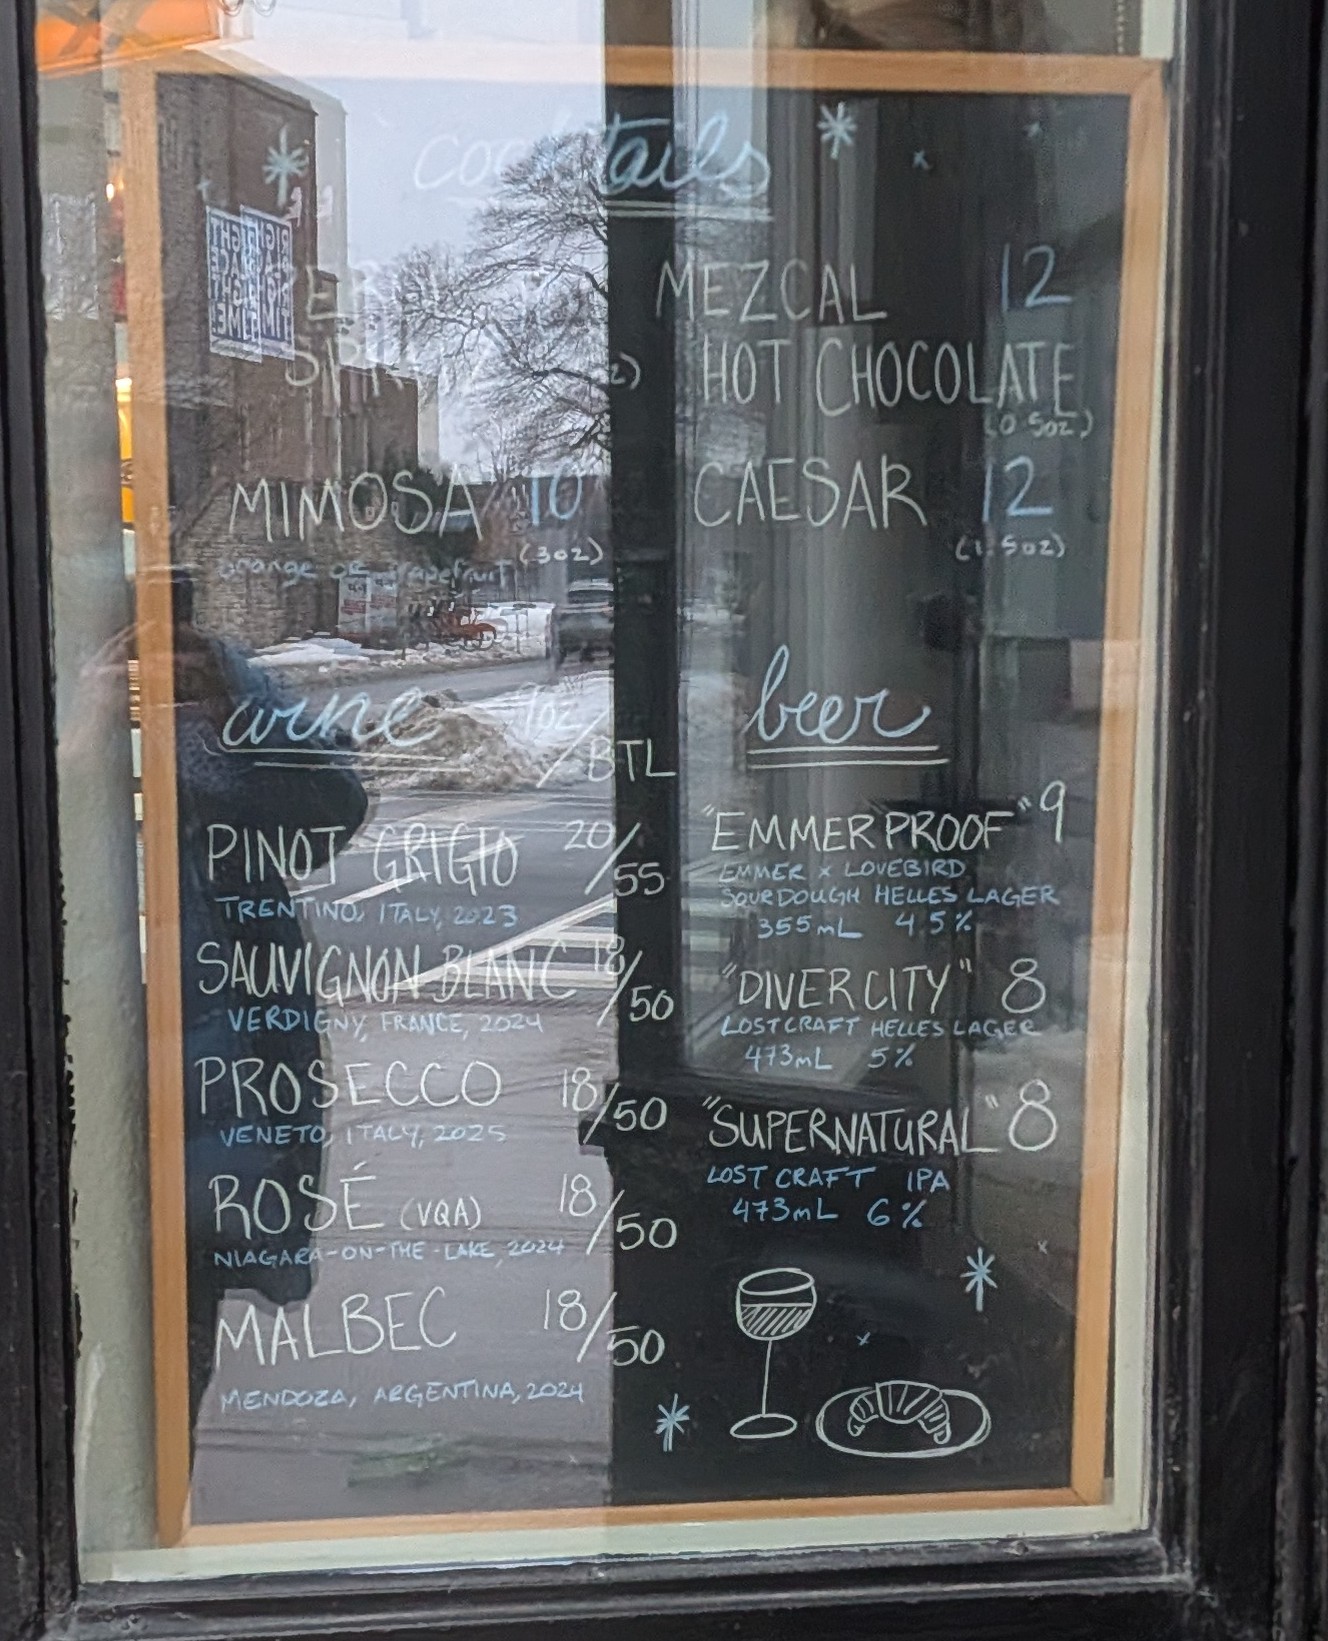 cocktails
MEZCAL 12
HOT CHOCOLATE
(0.5oz)
MIMOSA 10
(3oz)
orange or grapefruit
CAESAR 12
(1.5oz)
wine
/BTL
PINOT GRIGIO 20/55
TRENTINO, ITALY, 2023
SAUVIGNON BLANC 18/50
VERDIGNY, FRANCE, 2024
PROSECCO 18/50
VENETO, ITALY, 2025
ROSÉ (VQA) 18/50
NIAGARA-ON-THE-LAKE, 2024
MALBEC 18/50
MENDOZA, ARGENTINA, 2024
beer
"EMMERPROOF" 9
EMMER x LOVEBIRD
SOURDOUGH HELLES LAGER
355mL 4.5%
"DIVERCITY" 8
LOST CRAFT HELLES LAGER
473mL 5%
"SUPERNATURAL" 8
LOST CRAFT IPA
473mL 6%